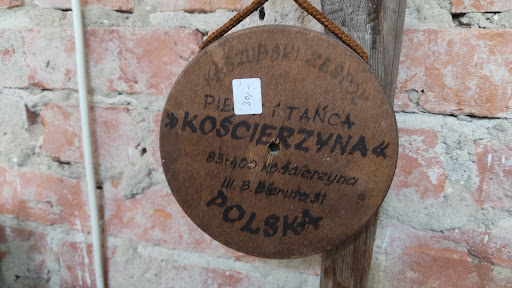 KASZUBSKI ZESPÓŁ
30,-
PIEŚNI I TAŃCA
»KOŚCIERZYNA«
83-400 Kościerzyna
ul. B. Bieruta 31
POLSKA